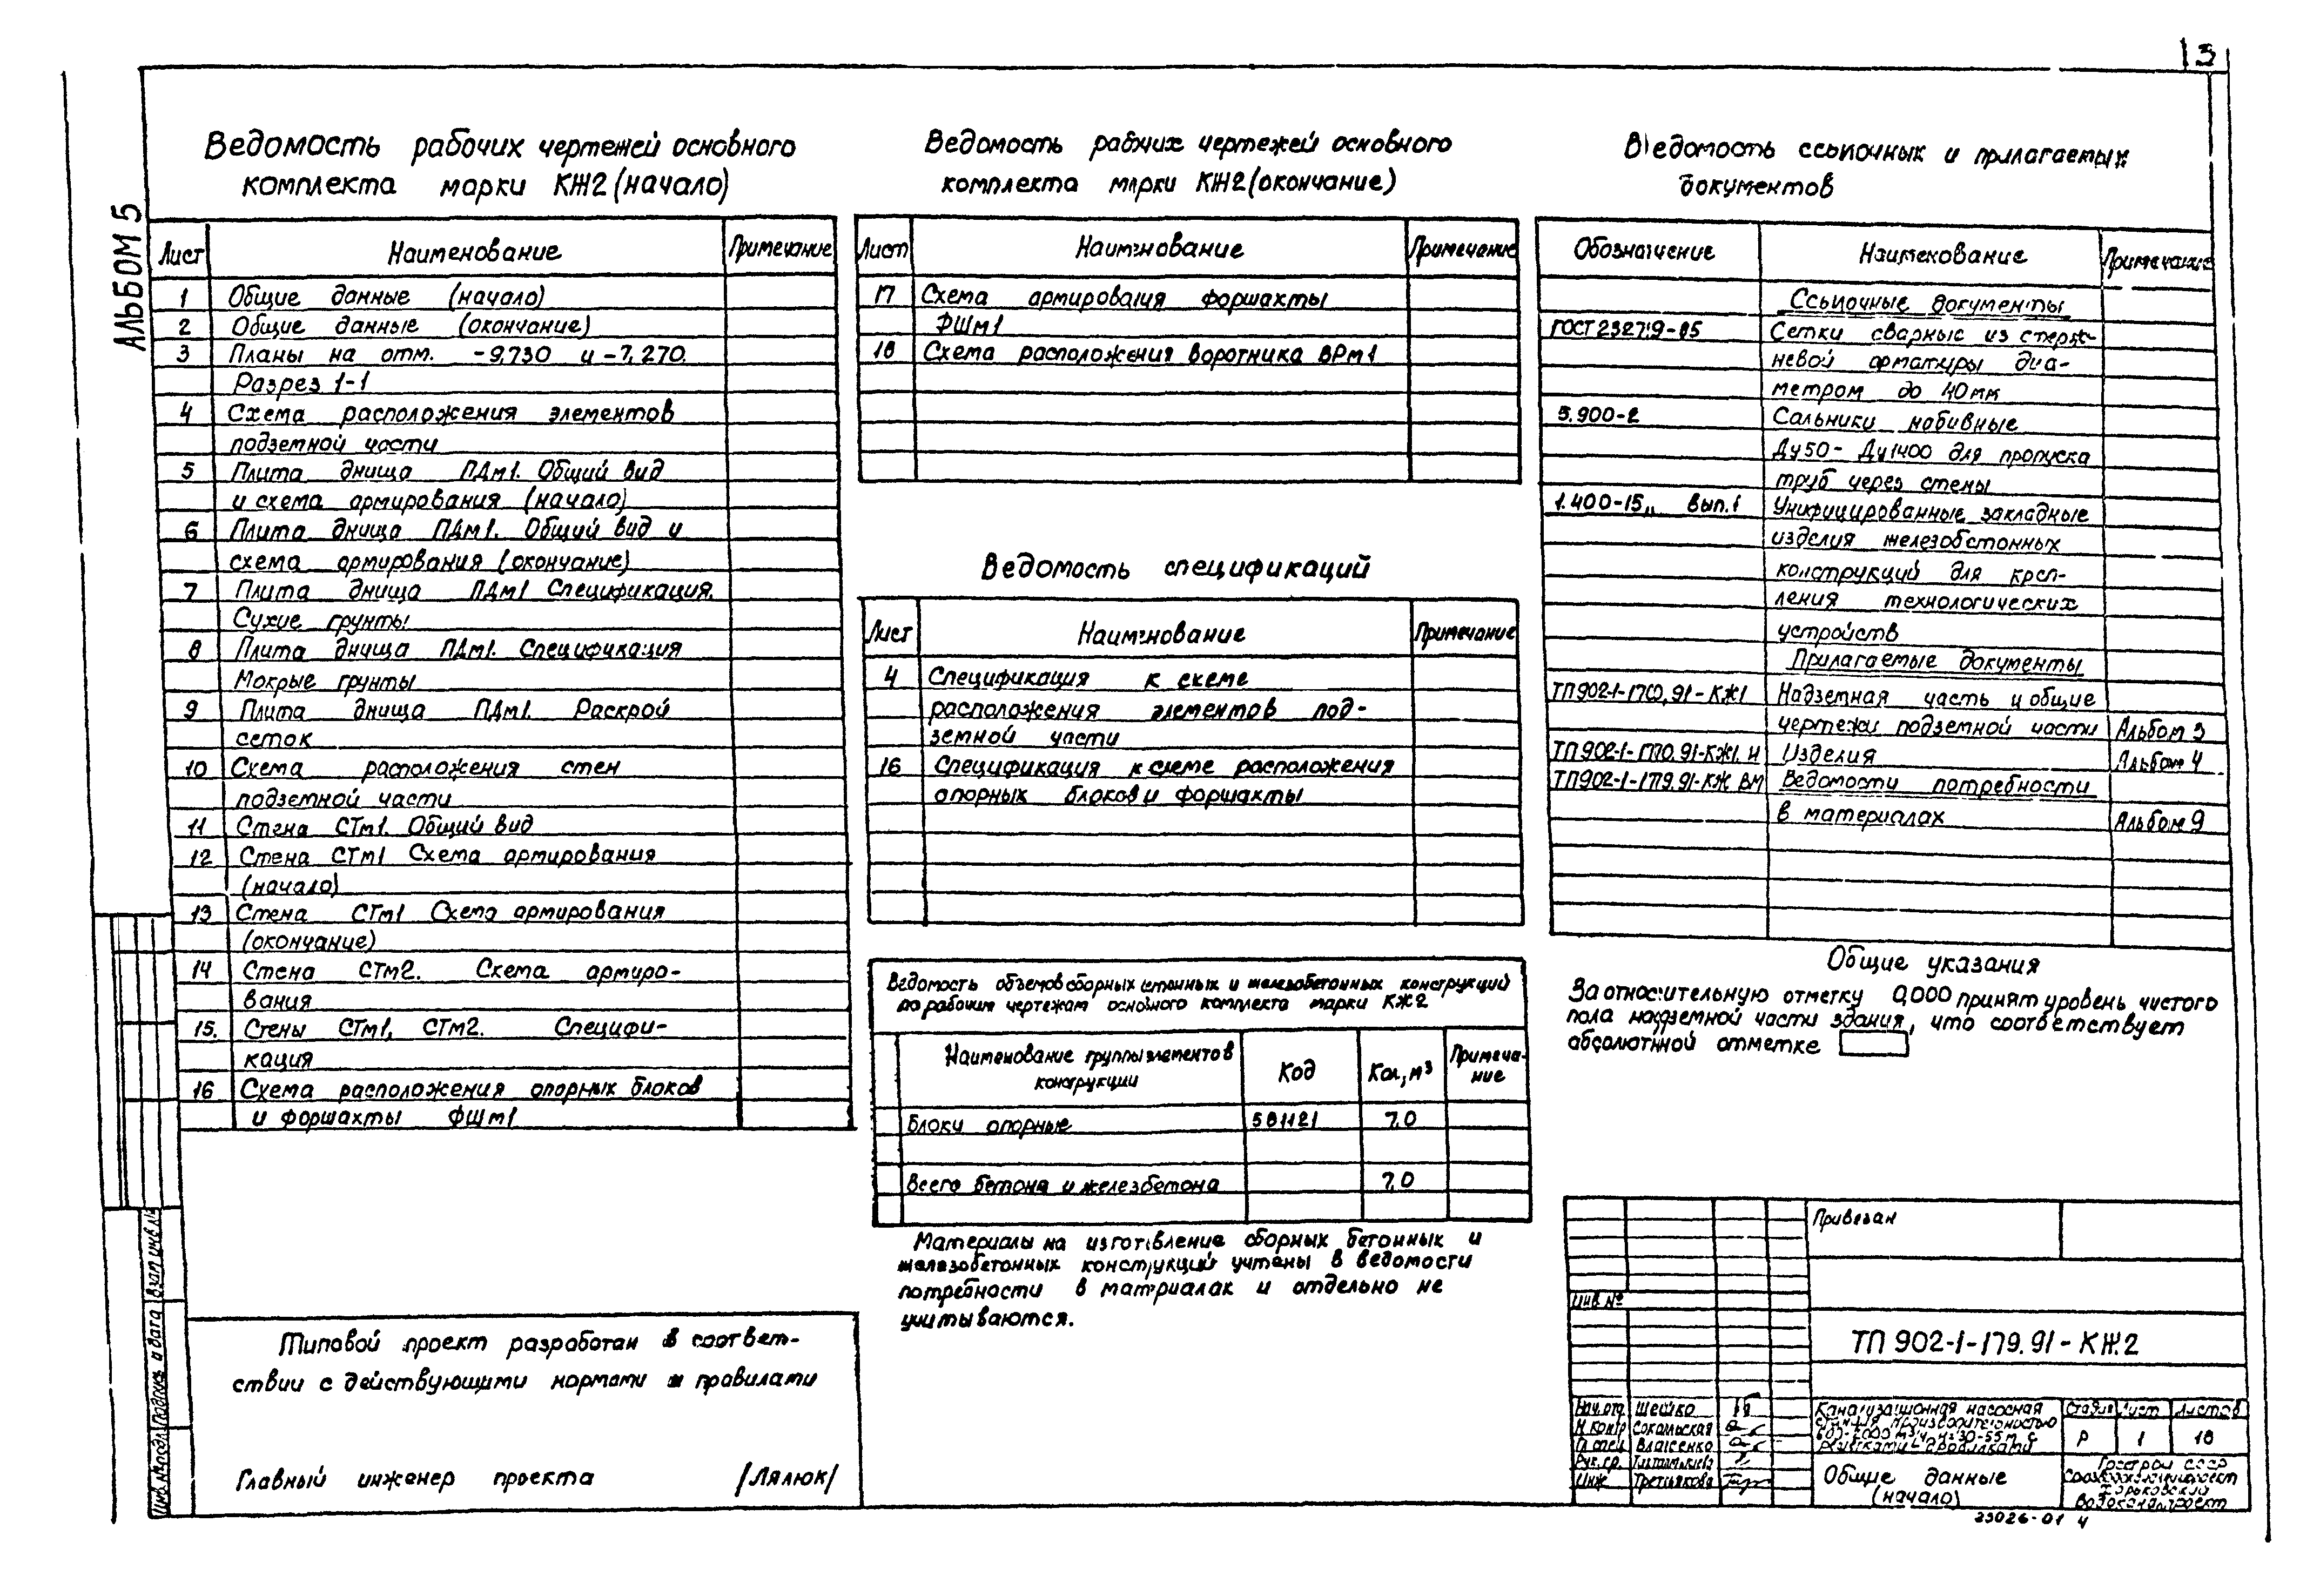 3
АЛЬБОМ 5
Ведомость рабочих чертежей основного
комплекта марки КЖ2 (начало)
Лист Наименование Примечание
1 Общие данные (начало)
2 Общие данные (окончание)
3 Планы на отм. -9,730 и -7,270.
Разрез 1-1
4 Схема расположения элементов
подземной части
5 Плита днища ПДм1. Общий вид
и схема армирования (начало)
6 Плита днища ПДм1. Общий вид и
схема армирования (окончание)
7 Плита днища ПДм1 Спецификация.
Сухие грунты
8 Плита днища ПДм1. Спецификация
Мокрые грунты
9 Плита днища ПДм1. Раскрой
сеток
10 Схема расположения стен
подземной части
11 Стена СТм1. Общий вид
12 Стена СТм1 Схема армирования
(начало)
13 Стена СТм1 Схема армирования
(окончание)
14 Стена СТм2. Схема армиро-
вания
15. Стены СТм1, СТм2. Специфи-
кация
16 Схема расположения опорных блоков
и форшахты ФШм1
Типовой проект разработан в соответ-
ствии с действующими нормами и правилами
Главный инженер проекта /Лялюк/
Ведомость рабочих чертежей основного
комплекта марки КЖ2 (окончание)
Лист Наименование Примечание
17 Схема армирования форшахты
ФШм1
18 Схема расположения воротника ВРм1
Ведомость спецификаций
Лист Наименование Примечание
4 Спецификация к схеме
расположения элементов под-
земной части
16 Спецификация к схеме расположения
опорных блоков и форшахты
Ведомость объемов сборных бетонных и железобетонных конструкций
по рабочим чертежам основного комплекта марки КЖ2
Наименование группы элементов
конструкции
Код Кол, м³ Примеча-
ние
Блоки опорные 581121 7,0
Всего бетона и железбетона 7,0
Материалы на изготовление сборных бетонных и
железобетонных конструкций учтены в ведомости
потребности в материалах и отдельно не
учитываются.
Ведомость ссылочных и прилагаемых
документов
Обозначение Наименование Примечание
Ссылочные документы
ГОСТ 23279-85 Сетки сварные из стерж-
невой арматуры диа-
метром до 40 мм
5.900-2 Сальники набивные
Ду50- Ду1400 для пропуска
труб через стены
1.400-15,, вып.1 Унифицированные закладные
изделия железобетонных
конструкций для креп-
ления технологических
устройств
Прилагаемые документы
Надземная часть и общие
чертежи подземной части Альбом 3
Изделия Альбом 4
ТП902-1-179.91-КЖ ВМ Ведомости потребности
в материалах Альбом 9
Общие указания
За относительную отметку 0,000 принят уровень чистого
пола надземной части здания, что соответствует
абсолютной отметке
Привязан
Инв №
ТП 902-1-179.91-КЖ2
Нач.отд Шейко
Н контр Сокольская
Гл спец Власенко
Рук.гр.
Инж Третьякова
Канализационная насосная
станция производительностью
решетками-дробилками
Стадия Лист Листов
Р 1 18
Общие данные
(начало)
Госстрой СССР
Союзводоканалпроект
Харьковский
Водоканалпроект
Инв.№подл. Подпись и дата Взам инв №
23026-01 4